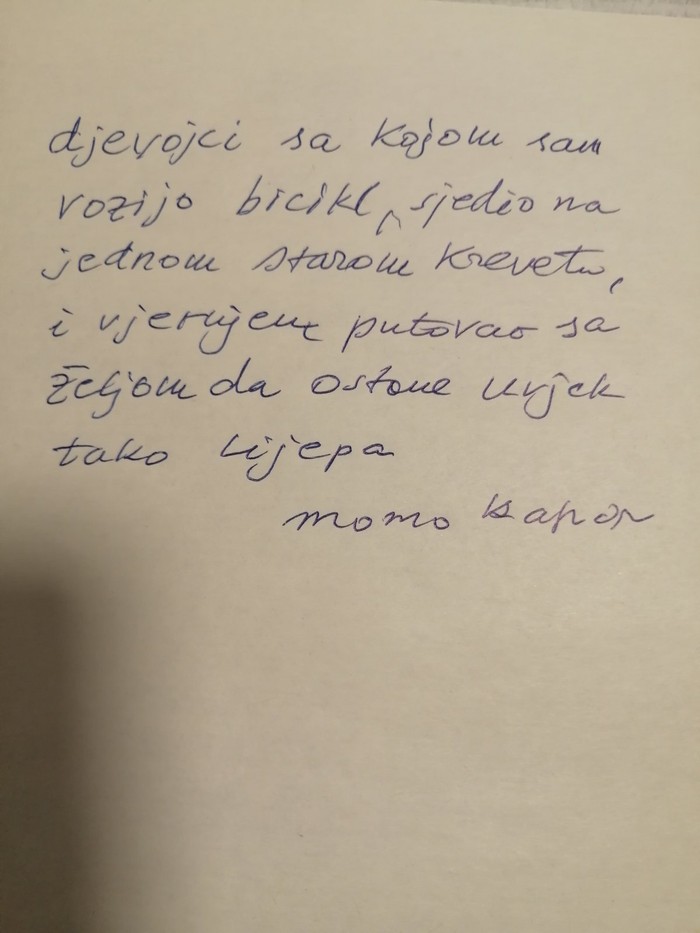 djevojci sa kojom sam
vozijo bicikl, sjedio na
jednom starom krevetu,
i vjerujem putovao sa
željom da ostane uvjek
tako lijepa
momo kapor